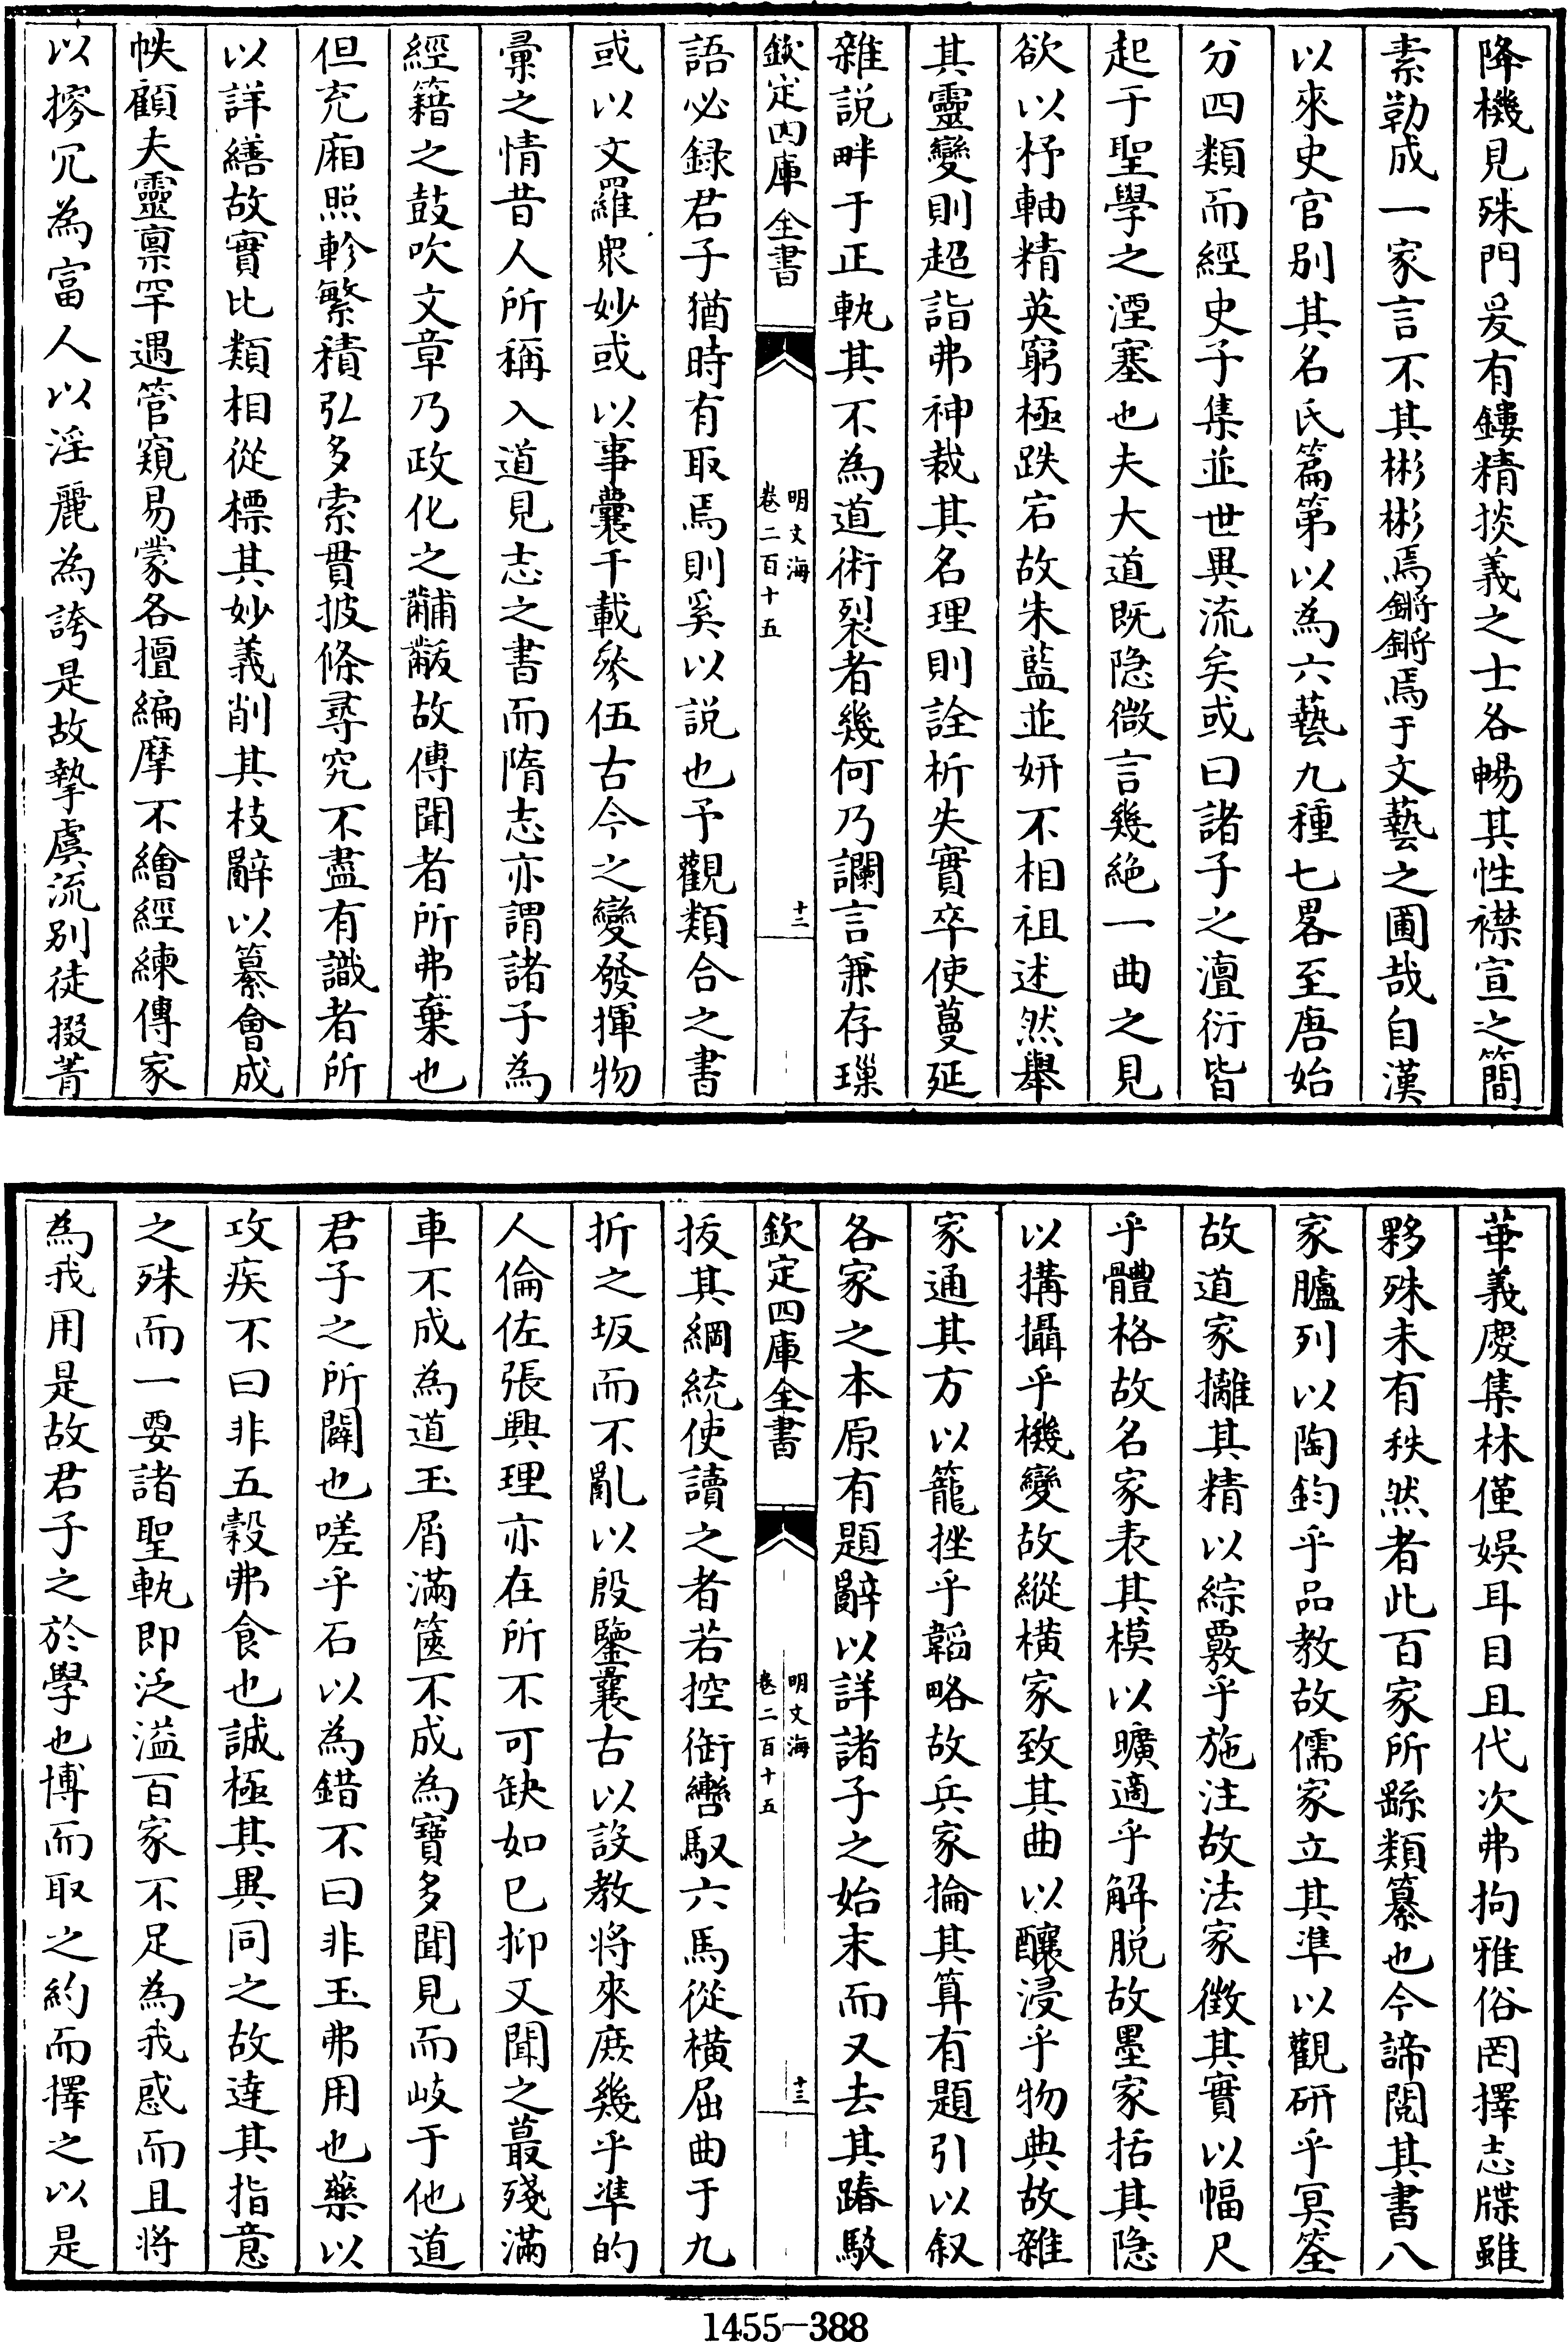 降機見殊門爰有鏤精掞義之士各暢其性襟宣之簡
素勒成一家言不其彬彬焉鏘鏘焉于文藝之圃哉自漢
以來史官别其名氏篇第以為六藝九種七畧至唐始
分四類而經史子集並世異流矣或曰諸子之澶衍皆
起于聖學之湮塞也夫大道既隐微言幾絶一曲之見
欲以杼軸精英窮極跌宕故朱藍並妍不相祖述然舉
其靈變則超詣弗神裁其名理則詮析失實卒使蔓延
雜説畔于正軌其不為道術裂者幾何乃讕言兼存璅
欽定四庫全書
明文海
卷二百十五
十二
語必録君子猶時有取焉則奚以説也予觀類合之書
或以文羅衆妙或以事囊千載參伍古今之變發揮物
彙之情昔人所稱入道見志之書而隋志亦謂諸子為
經籍之鼓吹文章乃政化之黼黻故傳聞者所弗棄也
但充廂照軫繁積弘多索貫披條尋究不盡有識者所
以詳繕故實比類相從標其妙義削其枝辭以纂會成
帙顧夫靈禀罕遇管窺易蒙各擅編摩不繪經練傳家
以摎冗為富人以淫麗為誇是故摯虞流别徒掇菁
華義慶集林僅娛耳目且代次弗拘雅俗罔擇志牒雖
夥殊未有秩然者此百家所繇類纂也今諦閲其書八
家臚列以陶鈞乎品教故儒家立其準以觀研乎冥筌
故道家摛其精以綜覈乎施注故法家徴其實以幅尺
乎體格故名家表其模以曠適乎解脱故墨家括其隐
以搆攝乎機變故縱横家致其曲以釀浸乎物典故雜
家通其方以籠挫乎韜略故兵家掄其算有題引以叙
各家之本原有題辭以詳諸子之始末而又去其踳駁
欽定四庫全書
明文海
卷二百十五
十三
拔其綱統使讀之者若控銜轡馭六馬從横屈曲于九
折之坂而不亂以殷鑒曩古以設教將來庶幾乎凖的
人倫佐張興理亦在所不可缺如已抑又聞之蕞殘滿
車不成為道玉屑滿篋不成為寶多聞見而岐于他道
君子之所闢也嗟乎石以為錯不曰非玉弗用也藥以
攻疾不曰非五榖弗食也誠極其異同之故達其指意
之殊而一要諸聖軌即泛溢百家不足為我惑而且將
為我用是故君子之於學也博而取之約而擇之以是
1455-388